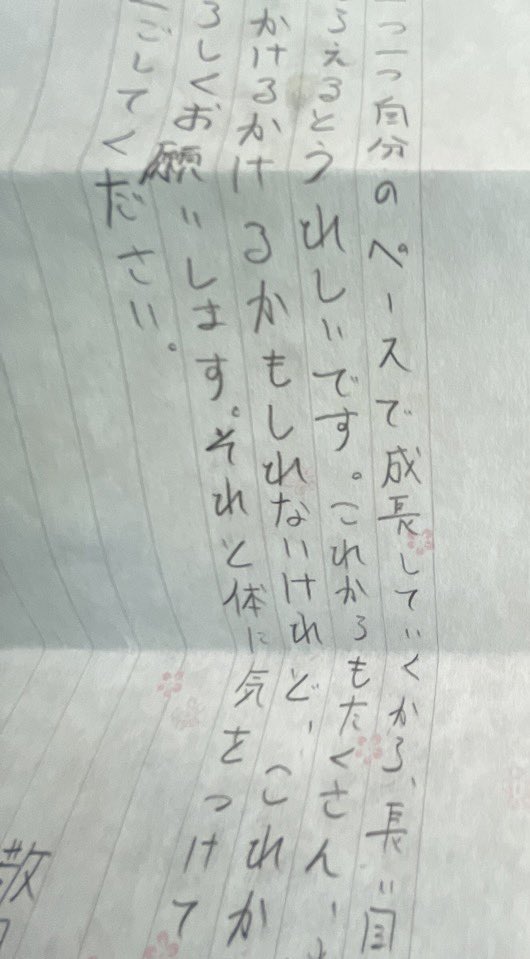 一つ一つ自分のペースで成長していくから、長い目
らえるとうれしいです。これからもたくさん
かけるかけるかもしれないけれど、これか
ろしくお願いします。それと体に気をつけて
ごしてください。
敬